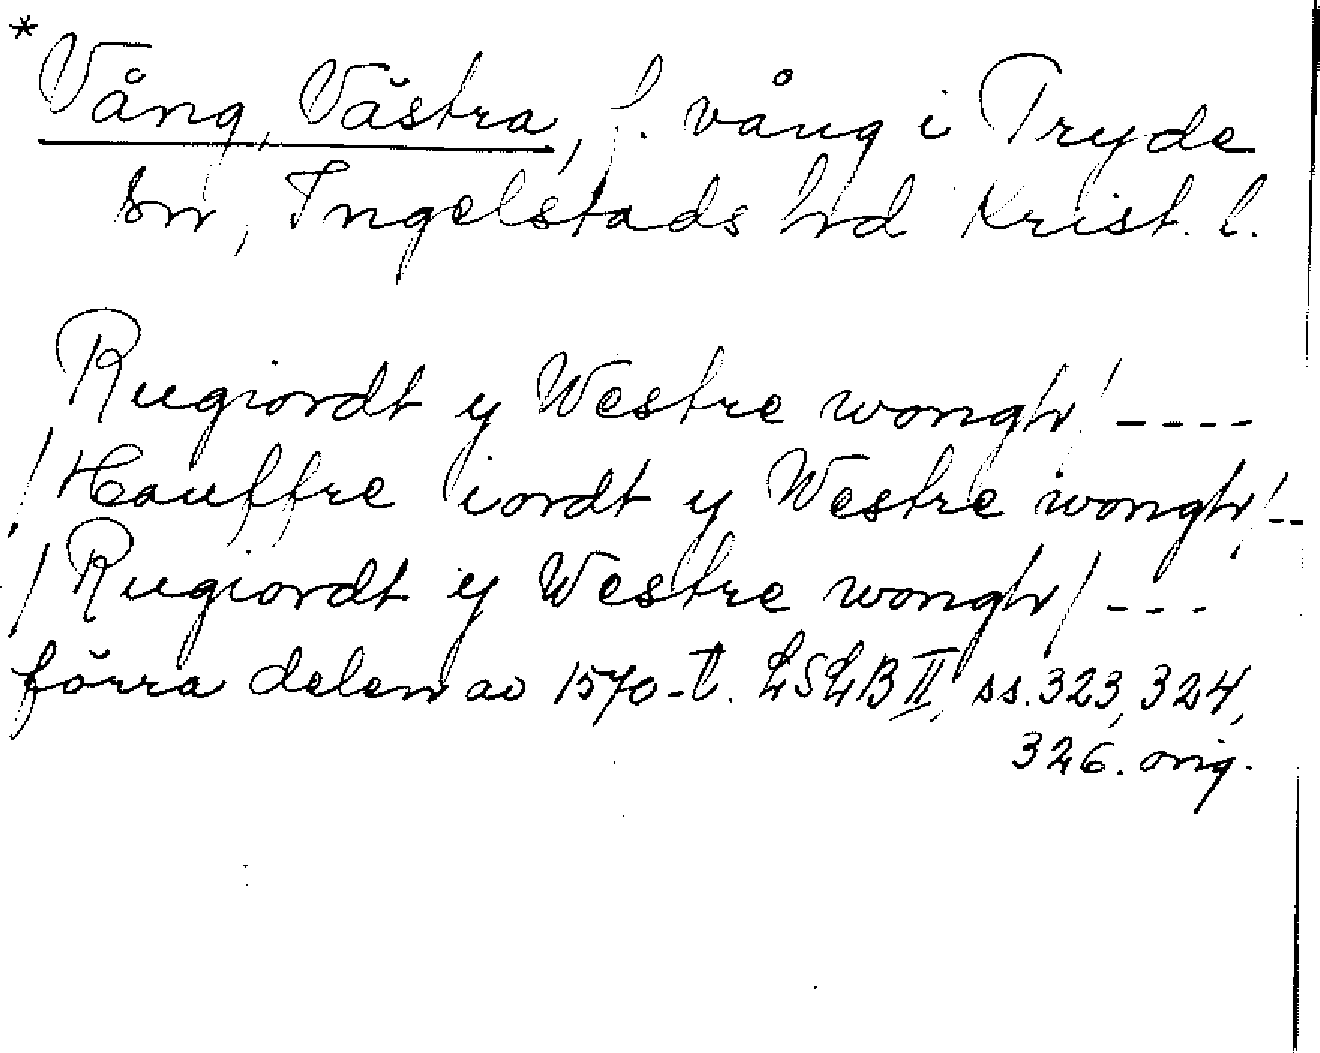 *Vång, Västra, f. vång i Tryde
sn, Ingelstads hrd Krist. l.
Rugiordt y Westre wongh/ ----
/Hauffre iordt y Westre wongh/--
/Rugiordt y Westre wongh/ ---
förra delen av 1570-t. LSLB II, ss. 323, 324,
326. orig.